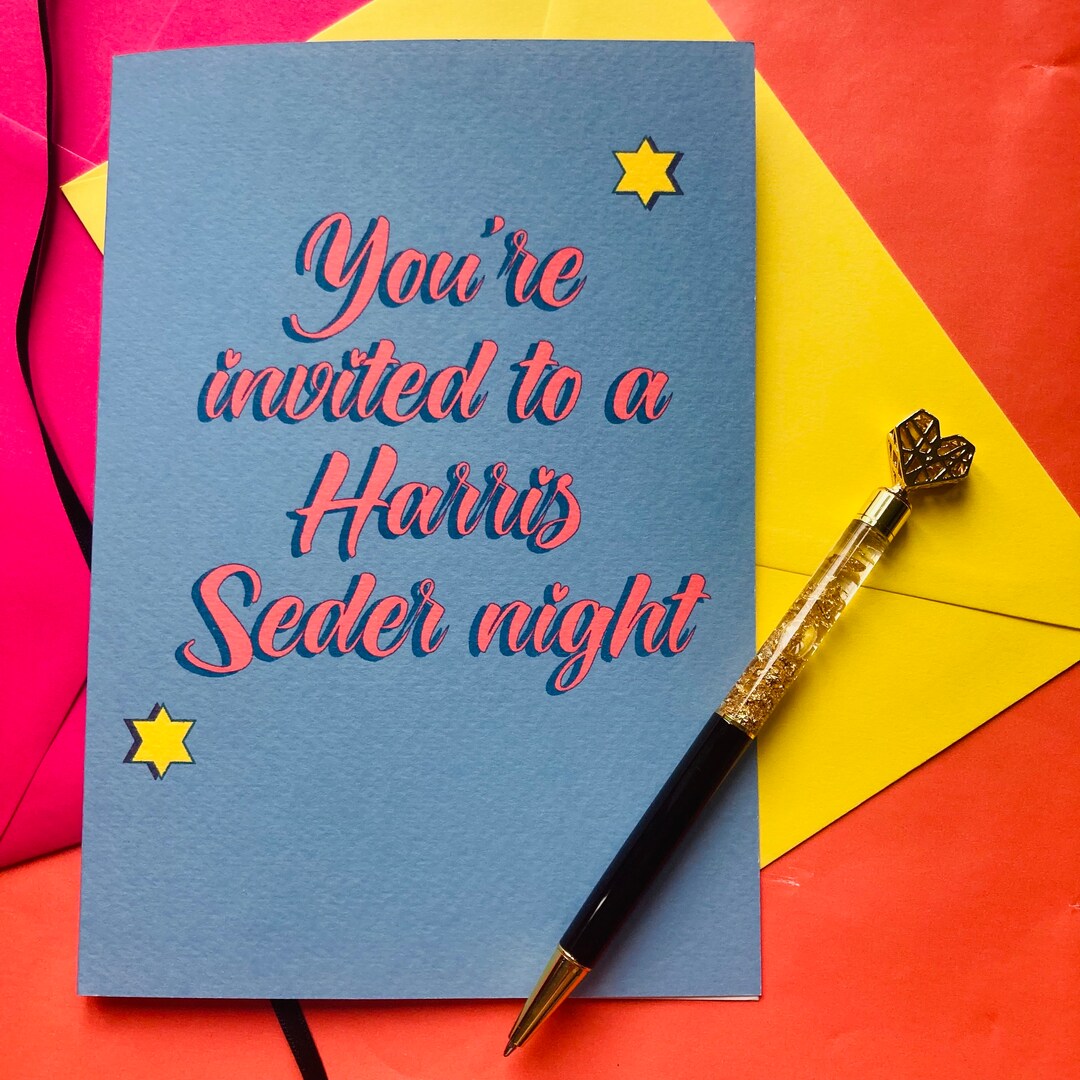 You're
invited to a
Harris
Seder night